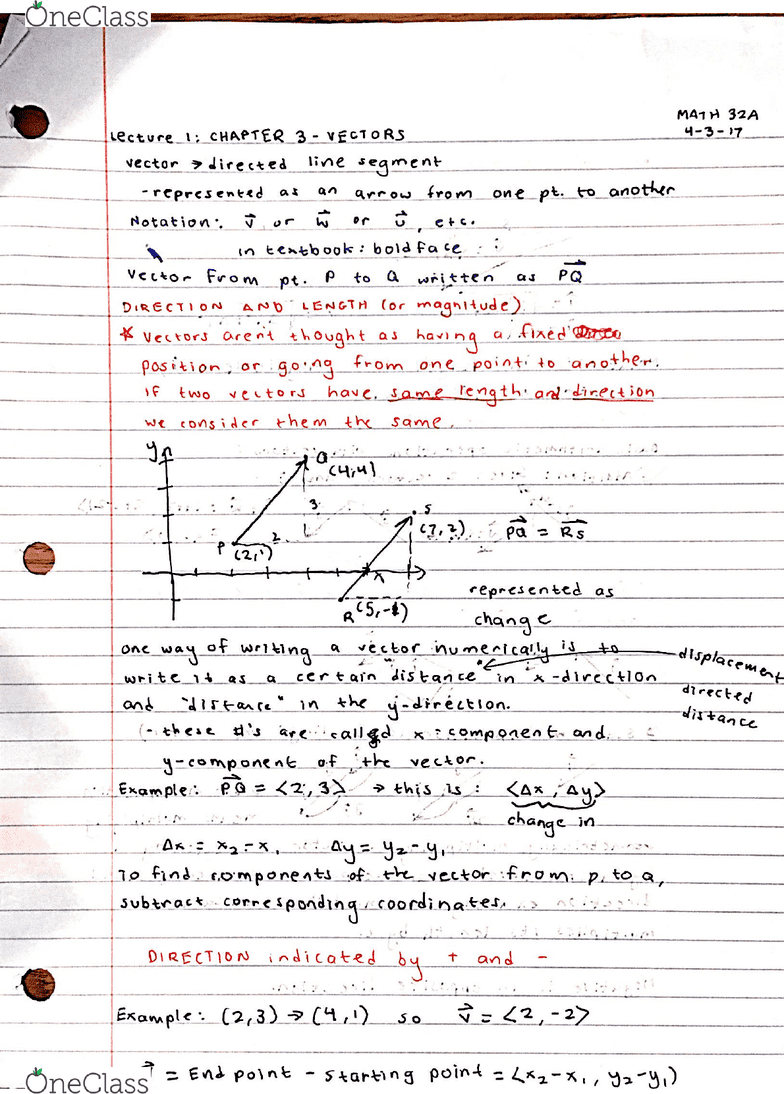 OneClass
MATH 32A
4-3-17
Lecture 1: CHAPTER 3 - VECTORS
vector → directed line segment
-represented as an arrow from one pt. to another
Notation: v⃗ or w⃗ or u⃗, etc.
in textbook: boldface
Vector from pt. P to Q written as PQ⃗
DIRECTION AND LENGTH (or magnitude)
* vectors aren't thought as having a fixed
position, or going from one point to another.
If two vectors have same length and direction
we consider them the same.
y
Q
(4,4)
3
S
P (2,1) 2
(7,2)
PQ⃗ = RS⃗
x
R (5,-1)
represented as
change
one way of writing a vector numerically is to
write it as a certain "distance" in x-direction
and "distance" in the y-direction.
displacement
directed
distance
- these #'s are called x-component and
y-component of the vector.
Example: PQ⃗ = <2,3> → this is: <Δx, Δy>
change in
Δx = x₂-x₁ Δy = y₂-y₁
To find components of the vector from p to Q,
subtract corresponding coordinates.
DIRECTION indicated by + and -
Example: (2,3) → (4,1) so v⃗ = <2,-2>
= End point - starting point = <x₂-x₁, y₂-y₁)
OneClass